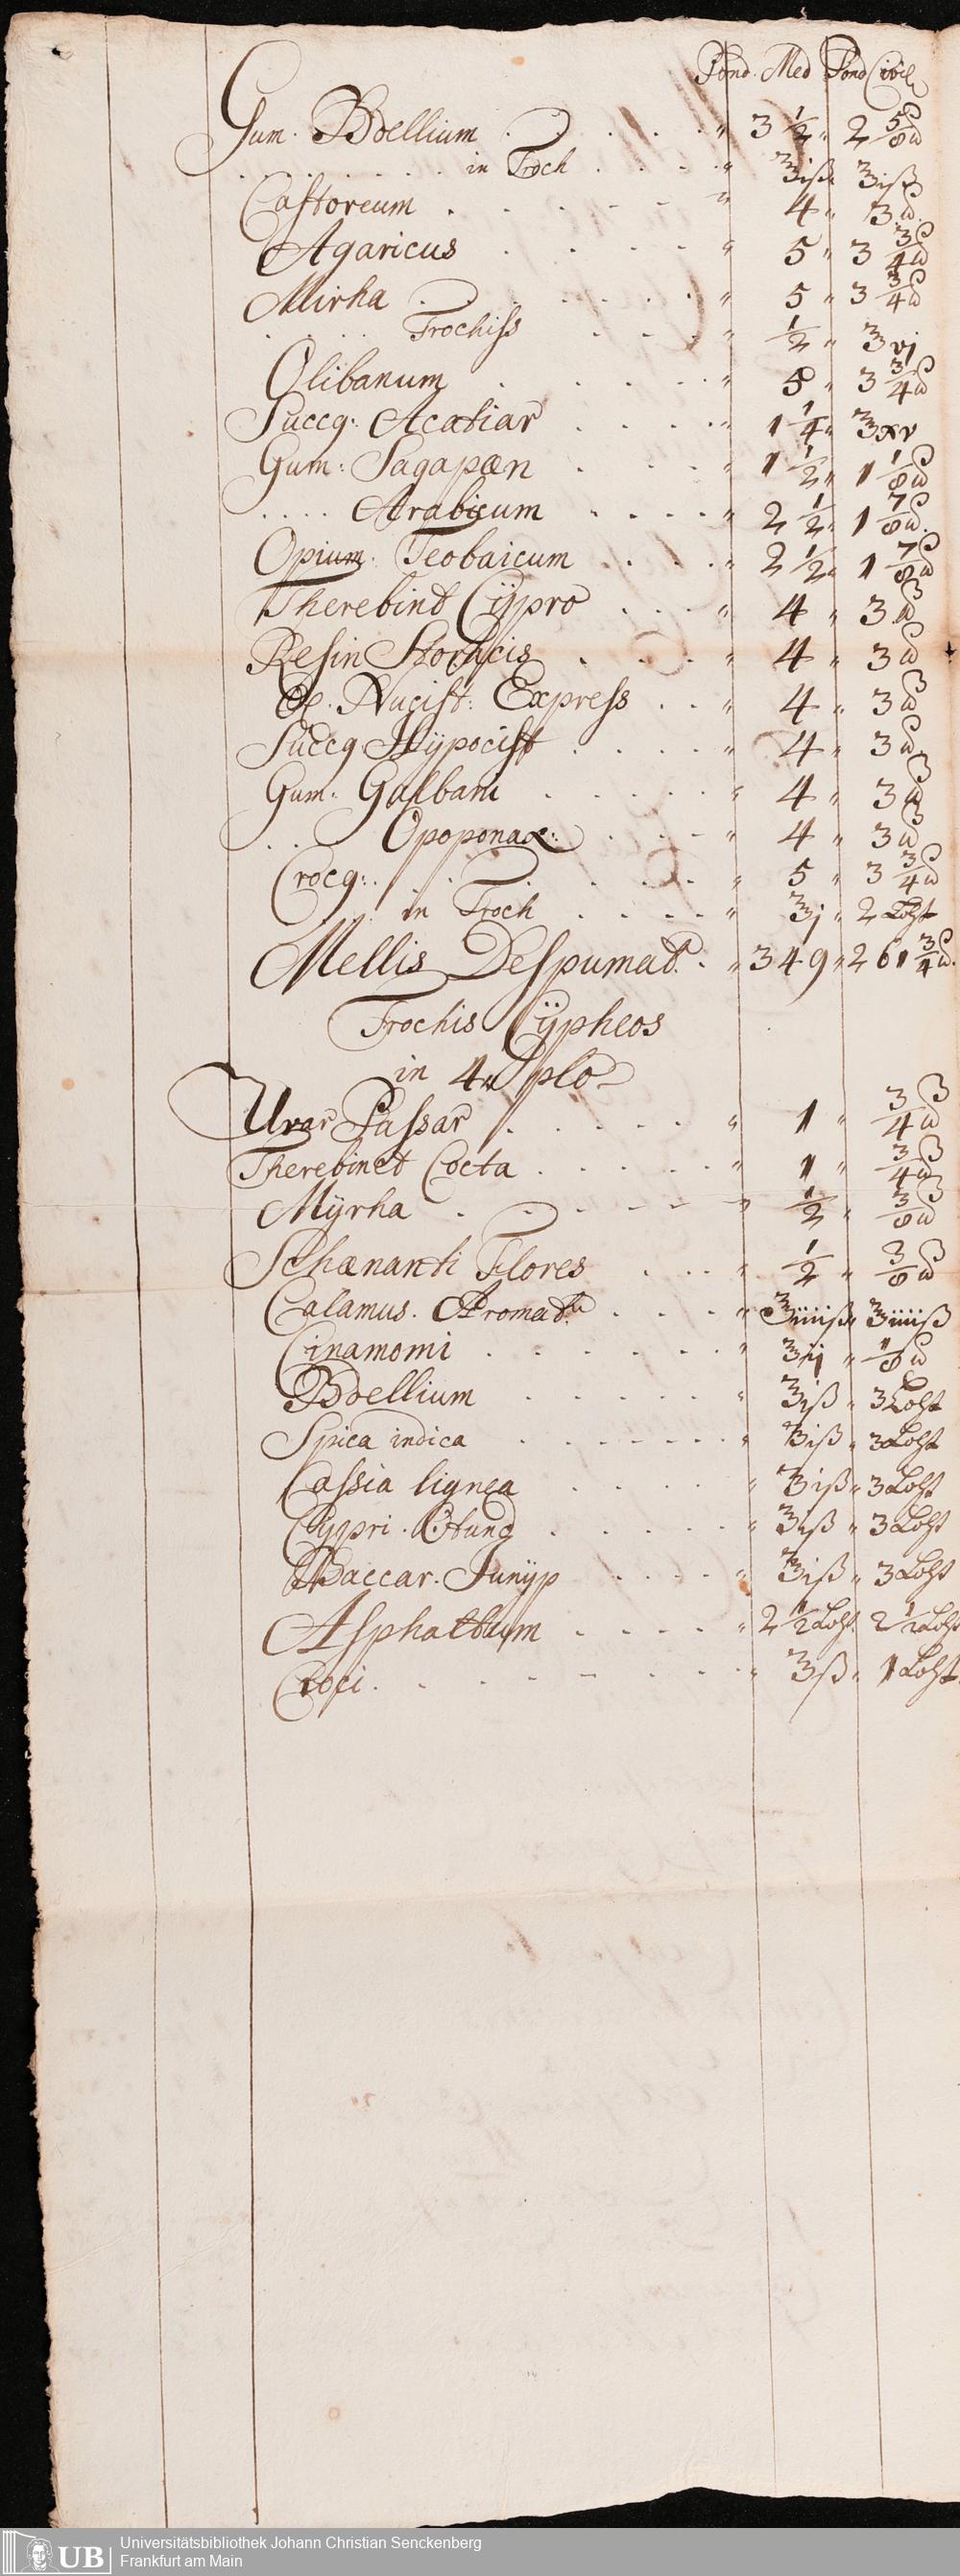 Pond. Med Pond Civil
Gum. Bdellium . . . . . " 3 1/2 " 2 5/8 ℔
. . . . . . . in Troch . . . . " ℥iß " ℥iß
Castoreum . . . . . " 4 " 3 ℔
Agaricus . . . . " 5 " 3 3/4 ℔
Mirha . . . . . . " 5 " 3 3/4 ℔
. . . . Trochiss . . . . " 1/2 " ℥vj
Olibanum . . . . . " 5 " 3 3/4 ℔
Succq: Acatiar . . . . " 1 1/4 " ℥xv
Gum: Sagapæn . . . . " 1 1/2 " 1 1/8 ℔
. . . . Arabicum . . . . " 2 1/2 " 1 7/8 ℔
Opium. Teobaicum . . . . " 2 1/2 " 1 7/8 ℔
Therebint Cÿpro . . . " 4 " 3 ℔
Resin Storacis . . . . " 4 " 3 ℔
Ol. Nucist: Express . . " 4 " 3 ℔
Succq Hÿpocist . . . . " 4 " 3 ℔
Gum: Galbani . . . . . " 4 " 3 ℔
. . Opoponax: . . . . " 4 " 3 ℔
Crocq: . . . . . . . " 5 " 3 3/4 ℔
. . . in Troch . . . . " ℥j " 2 Loht
Mellis Despumat. . " 349 " 261 3/4 ℔
Trochis Cÿpheos
in 4 plo
Uvar Passar . . . . . " 1 " 3/4 ℔
Therebinct Cocta . . . . . " 1 " 3/4 ℔
Mÿrha . . . . . " 1/2 " 3/8 ℔
Schænanti Flores . . . " 1/2 " 3/8 ℔
Calamus. Aromat. . . . " ℥iiiiß " ℥iiiiß
Cinamomi . . . . . . " ℥ij " 1/8 ℔
Bdellium . . . . . " ℥iß " 3 Loht
Spica indica . . . . . . . " ℥iß " 3 Loht
Cassia lignea . . . . " ℥iß " 3 Loht
Cÿpri. . . . . . " ℥iß " 3 Loht
Baccar. Junÿp . . . . " ℥iß " 3 Loht
Asphaltum . . . . " 2 1/2 Loht. 2 1/2 Loht
Croci . . . . . . . . " ℥ß " 1 Loht
UB Universitätsbibliothek Johann Christian Senckenberg
Frankfurt am Main